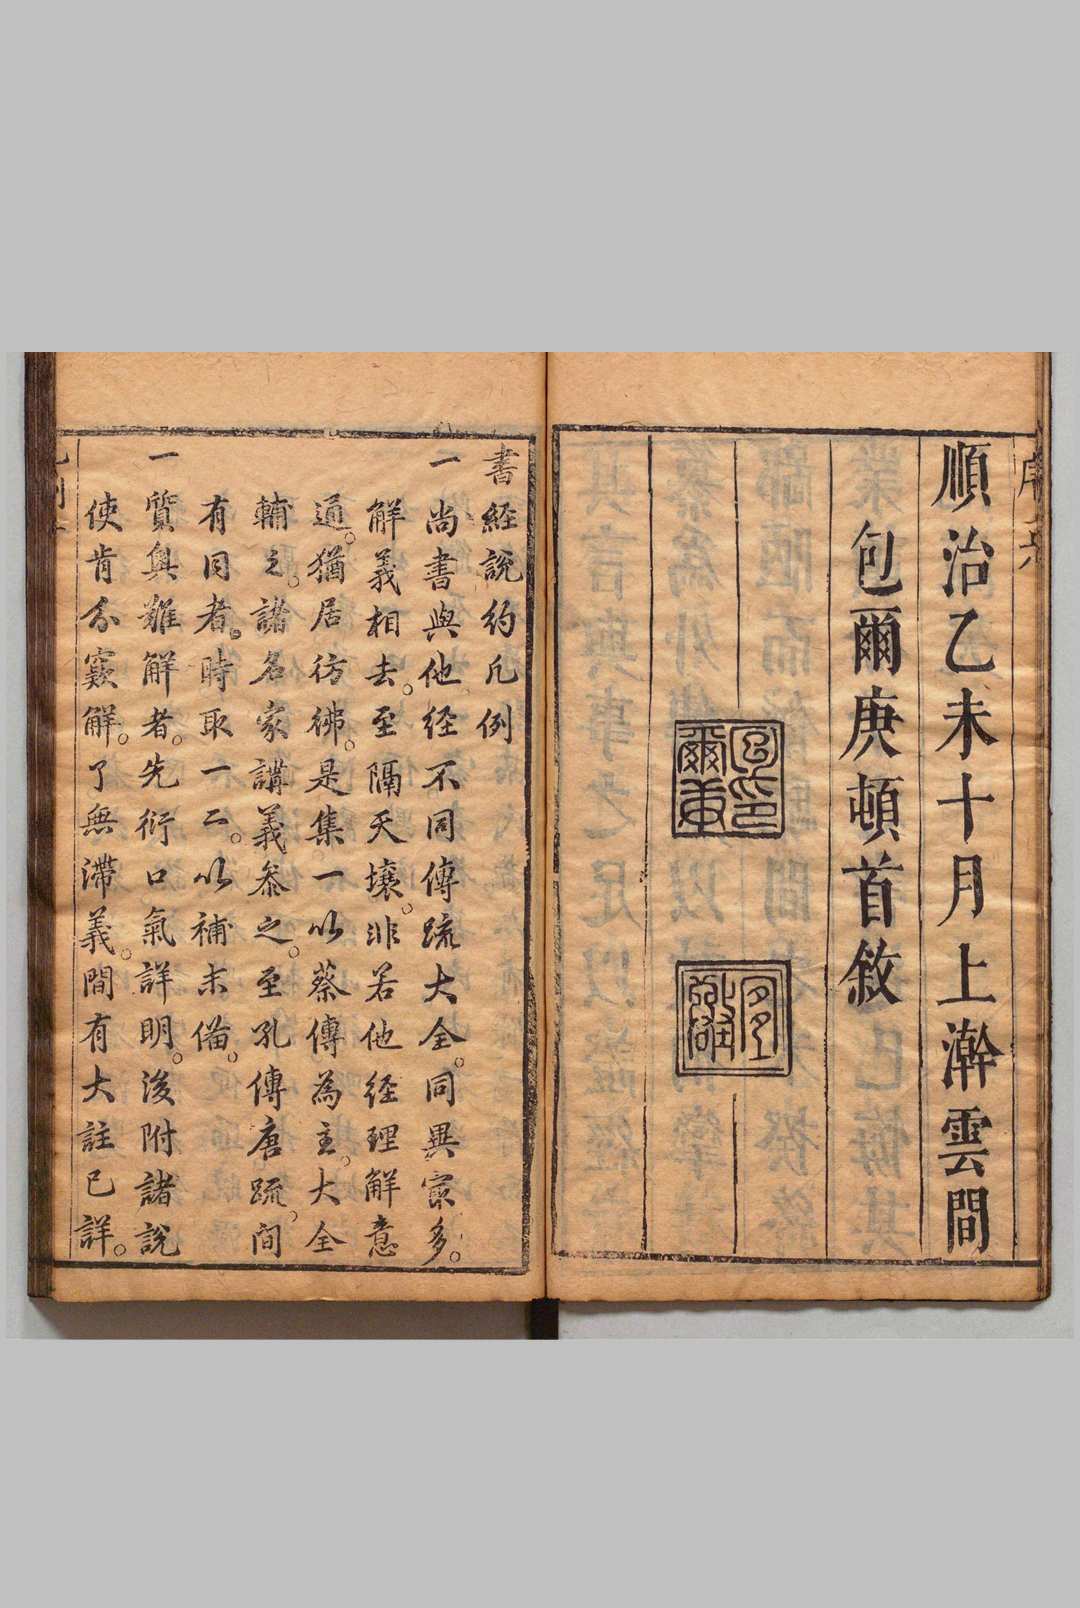 順治乙未十月上澣雲間
包爾庚頓首敘
包印爾庚
書經說約凡例
一尚書與他経不同傳疏大全。同異寔多。
解義相去。至隔天壤。非若他経理解意
通。猶居彷彿。是集一以蔡傳為主。大全
輔之。諸名家講義叅之。至孔傳唐疏。間
有同者。時取一二。以補未備。
一質奥難解者。先衍口氣詳明。後附諸說
使肯綮窾解。了無滯義。間有大註已詳。